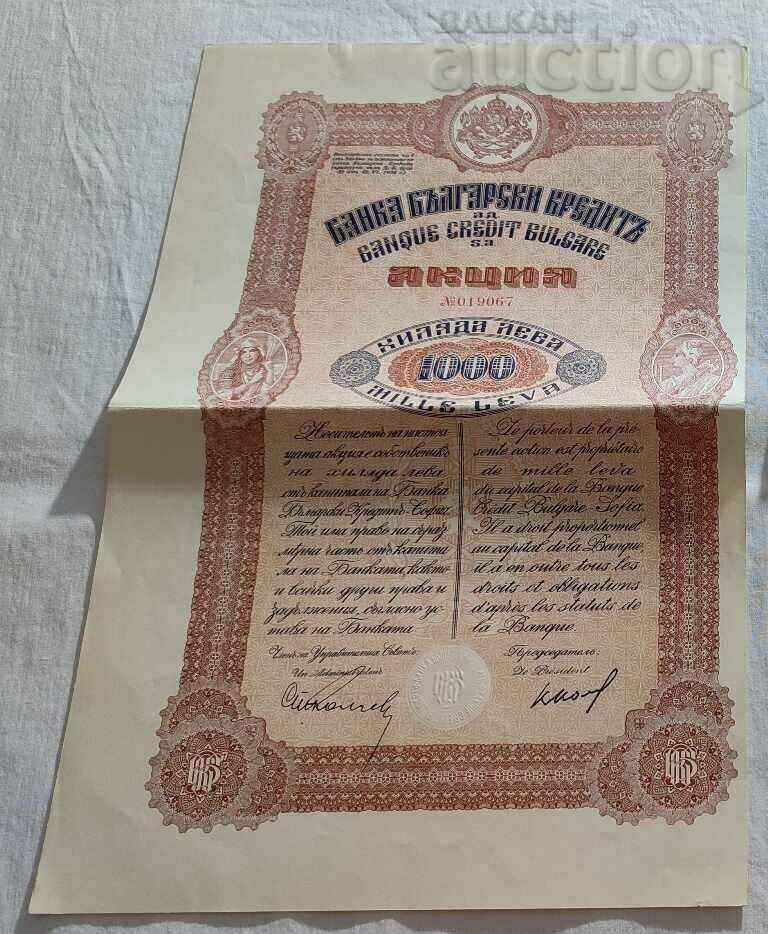 BALKAN
auction
БАНКА БЪЛГАРСКИ КРЕДИТЪ
А.Д.
BANQUE CREDIT BULGARE
S.A.
АКЦИЯ
№ 019067
ХИЛЯДА ЛЕВА
1000
MILLE LEVA
Носительтъ на настоя-
щата акция е собственикъ
на хиляда лева
отъ капитала на Банка
Български Кредитъ - София
Той има право на сораз-
мѣрна часть отъ капита-
ла на Банката, както
и всички други права и
задължения, съгласно ус-
тава на Банката
Le porteur de la pré-
sente action est propriétaire
de mille leva
du capital de la Banque
Crédit Bulgare - Sofia.
Il a droit proportionnel
au capital de la Banque,
il a en outre tous les
droits et obligations
d'après les statuts de
la Banque.
Членъ на Управителния Съветъ:
Un Administrateur
Председатель:
Le Président